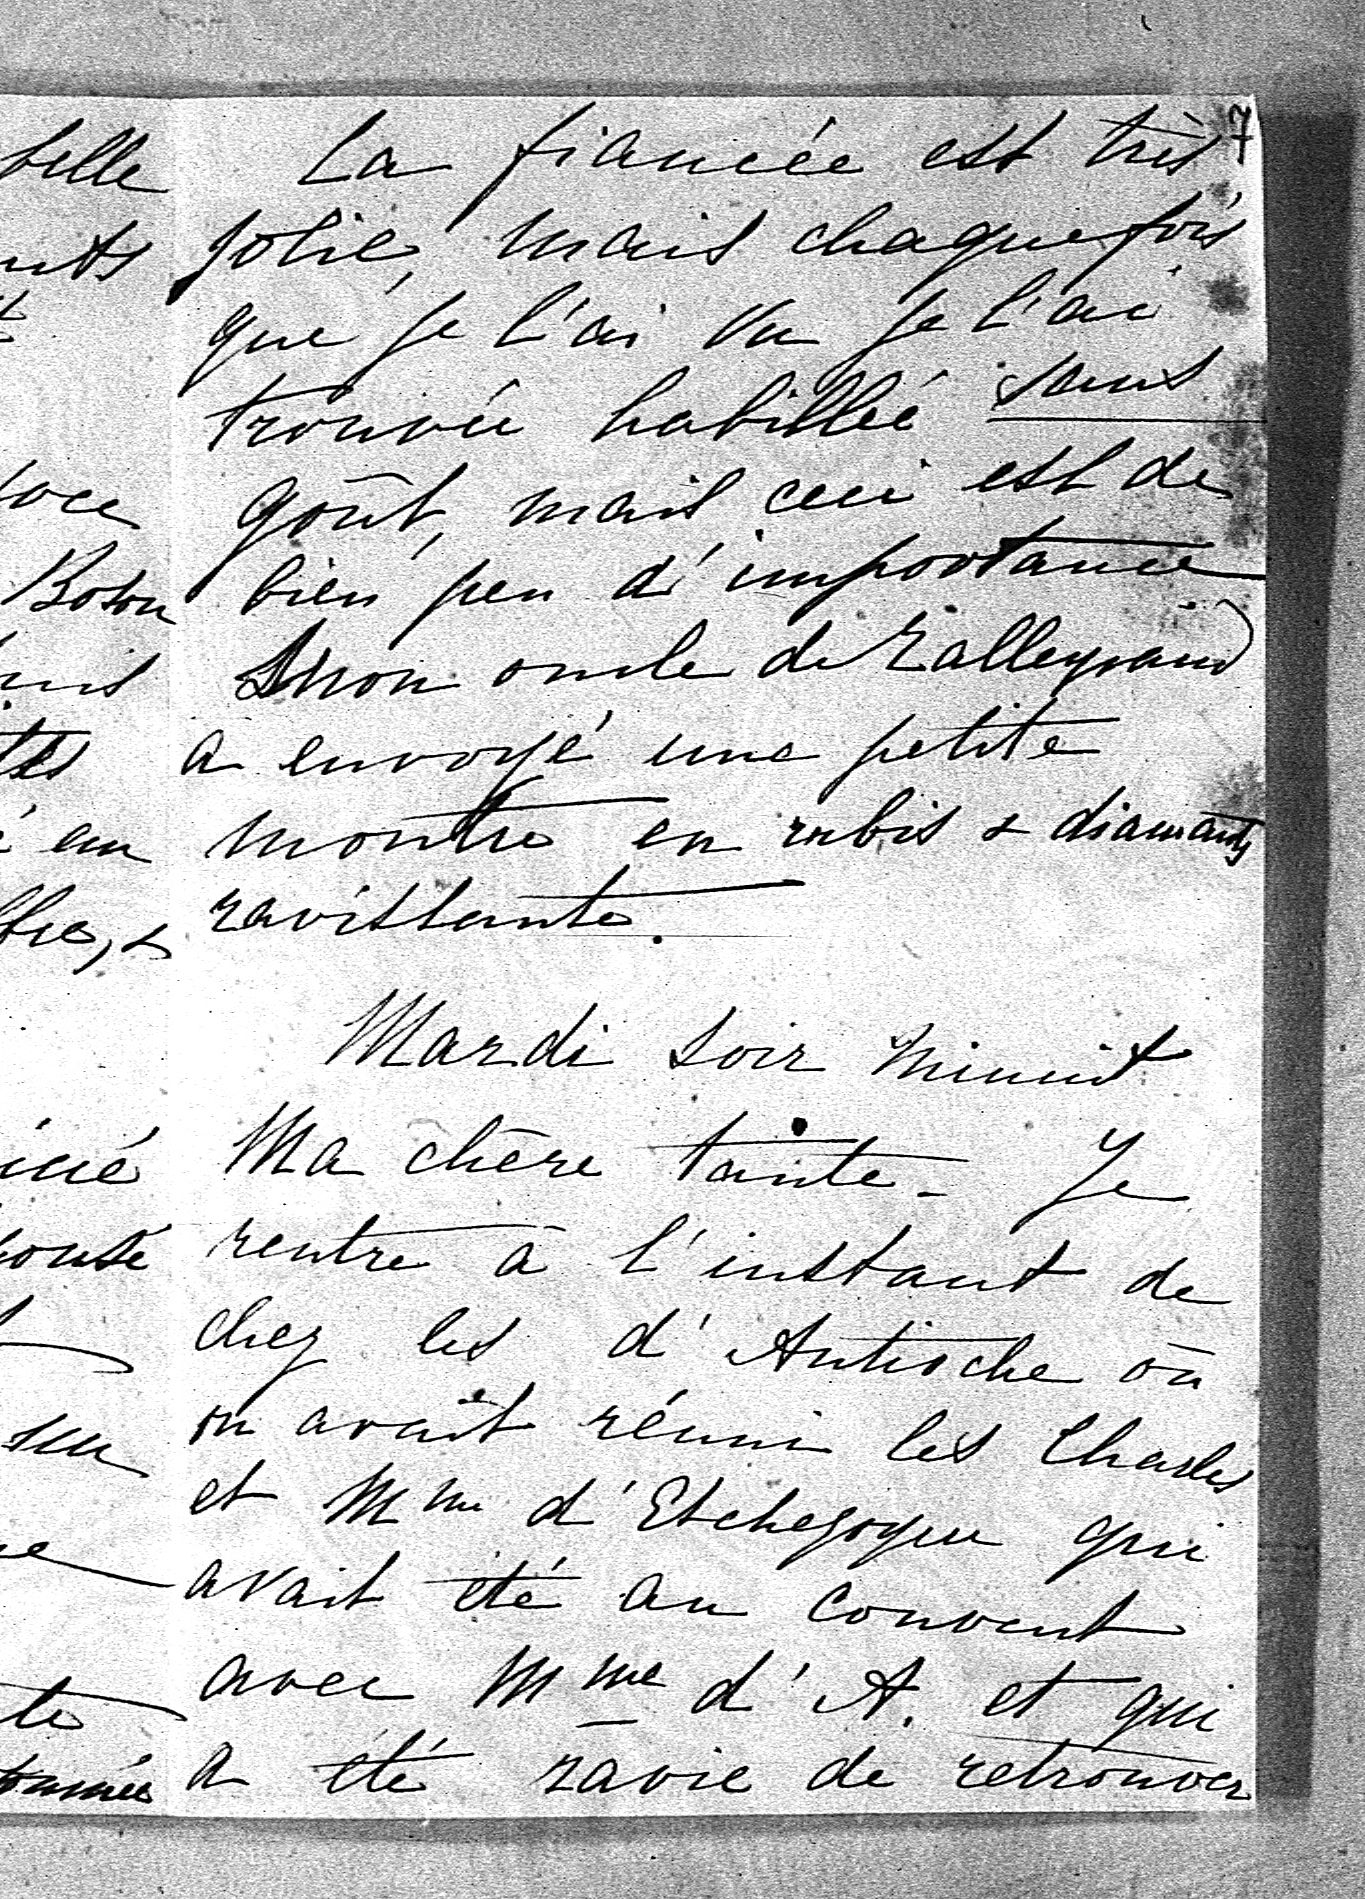 7
La fiancée est très
jolie, mais chaque fois
que je l'ai vu je l'ai
trouvée habillée sans
goût, mais ceci est de
bien peu d'importance
Mon oncle de Talleyrand
a envoyé une petite
montre en rubis & diamants
ravissante.
Mardi soir minuit
Ma chère tante - Je
rentre à l'instant de
chez les d'Antioche où
on avait réuni les Charles
et Mme d'Etchegoyen qui
avait été au couvent
avec Mme d'A. et qui
a été ravie de retrouver